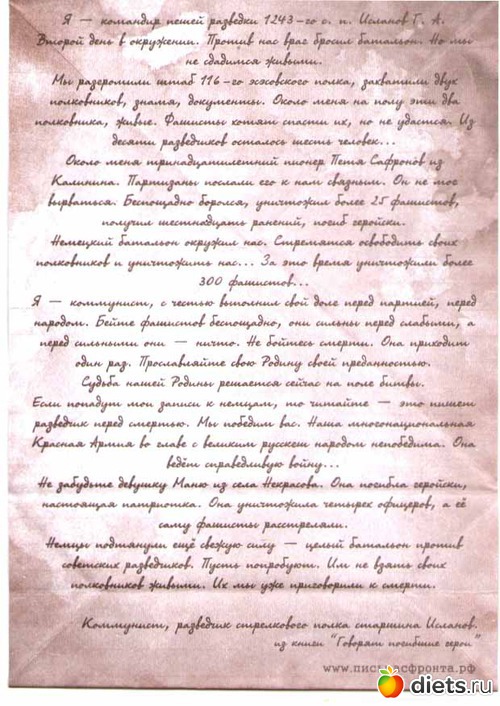 Я — командир пешей разведки 1243-го с. п. Исланов Г. А.
Второй день в окружении. Против нас враг бросил батальон. Но мы
не сдадимся живыми.
Мы разгромили штаб 116-го эсэсовского полка, захватили двух
полковников, знамя, документы. Около меня на полу эти два
полковника, живые. Фашисты хотят спасти их, но не удастся. Из
десяти разведчиков осталось шесть человек...
Около меня тринадцатилетний пионер Петя Сафронов из
Калинина. Партизаны послали его к нам связным. Он не мог
вырваться. Беспощадно боролся, уничтожил более 25 фашистов,
получил шестнадцать ранений, погиб геройски.
Немецкий батальон окружил нас. Стремятся освободить своих
полковников и уничтожить нас... За это время уничтожили более
300 фашистов...
Я — коммунист, с честью выполнил свой долг перед партией, перед
народом. Бейте фашистов беспощадно, они сильны перед слабыми, а
перед сильными они — ничто. Не бойтесь смерти. Она приходит
один раз. Прославляйте свою Родину своей преданностью.
Судьба нашей Родины решается сейчас на поле битвы.
Если попадут мои записи к немцам, то читайте — это пишет
разведчик перед смертью. Мы победим вас. Наша многонациональная
Красная Армия во главе с великим русским народом непобедима. Она
ведёт справедливую войну...
Не забудьте девушку Маню из села Некрасова. Она погибла геройски,
настоящая патриотка. Она уничтожила четырех офицеров, а её
саму фашисты расстреляли.
Немцы подтянули ещё свежую силу — целый батальон против
советских разведчиков. Пусть попробуют. Им не взять своих
полковников живыми. Их мы уже приговорили к смерти.
Коммунист, разведчик стрелкового полка старшина Исланов.
из книги "Говорят погибшие герои"
www.письмасфронта.рф
diets.ru